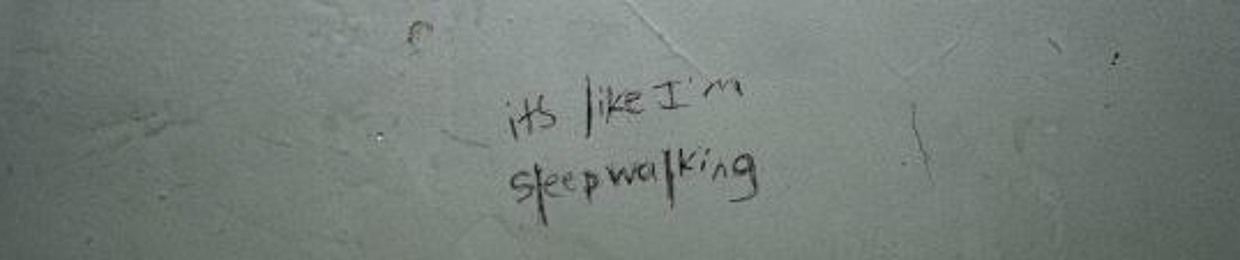 its like I'm
sleepwalking